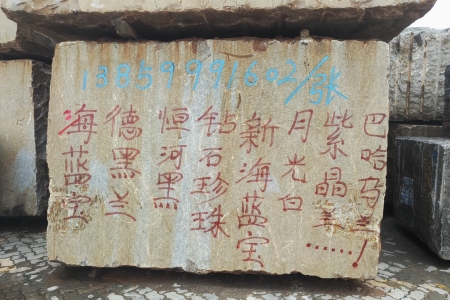 13859991602/张
海蓝宝
德黑兰
恒河黑
钻石珍珠
新海蓝宝
月光白
紫晶兰
巴哈马兰
……!